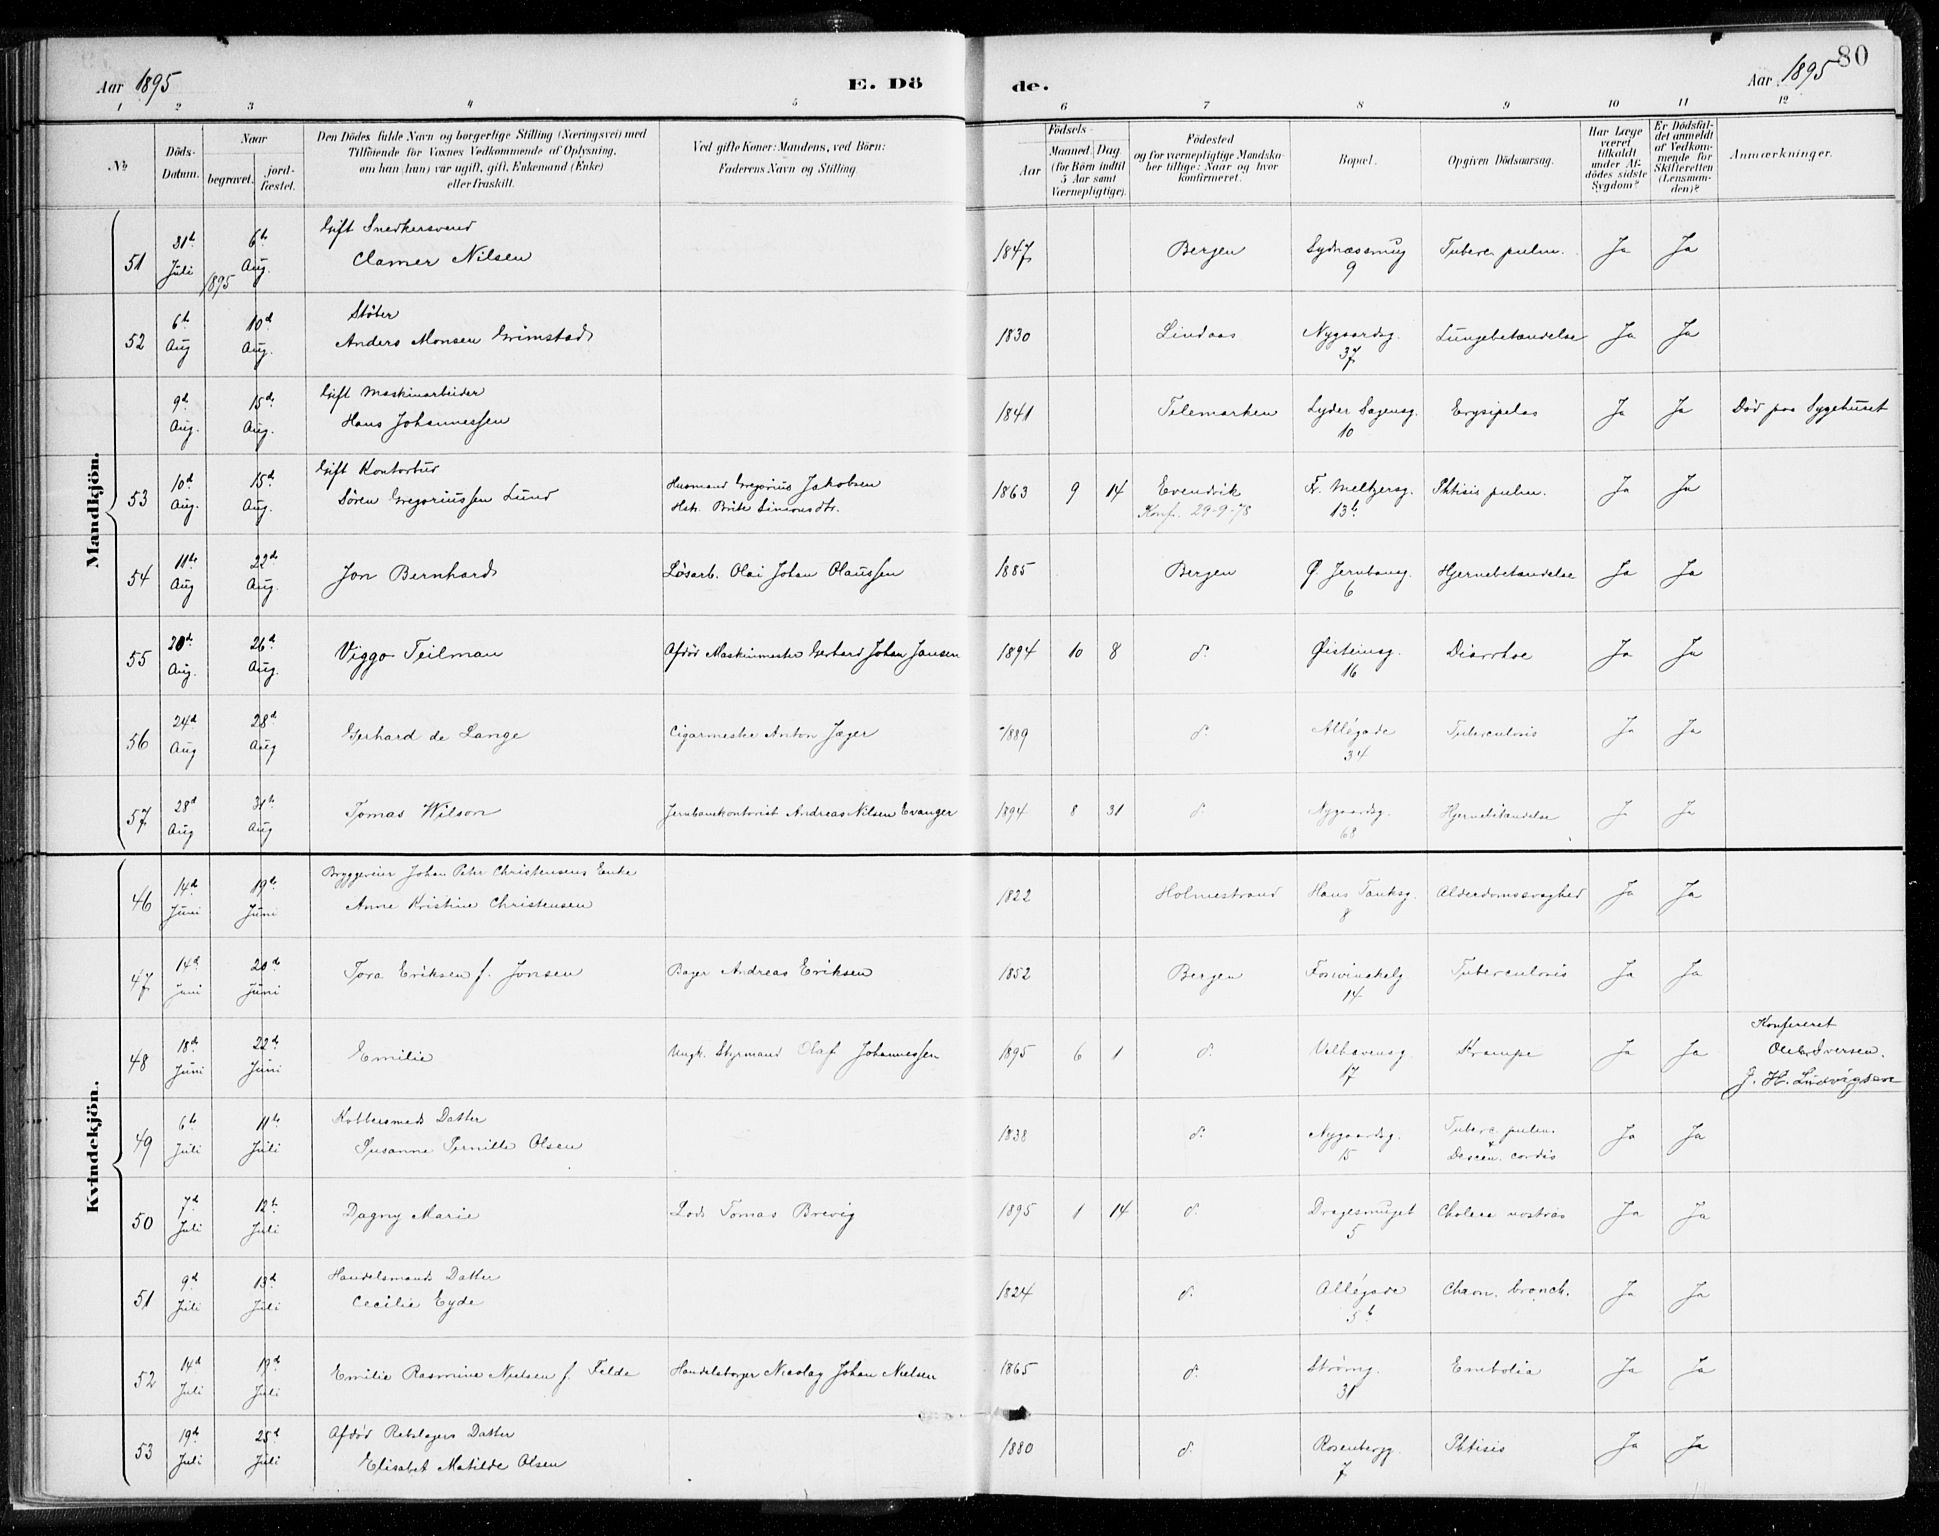 Aar 1895
E. Dö
de.
Aar 1895
80
1 2 3 4 5 6 7 8 9 10 11 12
No
Döds-Datum.
Naar
begravet.
jord-fæstet.
Den Dödes fulde Navn og borgerlige Stilling (Næringsvei) med
Tilföiende for Voxnes Vedkommende af Oplysning,
om han (hun) var ugift, gift, Enkemand (Enke)
eller fraskilt.
Ved gifte Koner: Mandens, ved Börn:
Faderens Navn og Stilling.
Födsels-
Aar
Maaned Dag
(for Börn indtil
5 Aar samt
Værnepligtige).
Födested
og for værnepligtige Mandska-
ber tillige: Naar og hvor
konfirmeret.
Bopæl.
Opgiven Dödsaarsag.
Har Læge
været
tilkaldt
under Af-
dödes sidste
Sygdom?
Er Dödsfal-
det anmeldt
af Vedkom-
mende for
Skifteretten
(Lensman-
den)?
Anmærkninger.
Mandkjön.
51 31te Juli 1895 6te Aug. Gift Snedkersvend
Clamer Nilsen 1847 Bergen Sydnæssmug 9 Tuberc. pulm. Ja Ja
52 6te Aug 10d Aug. Støber
Anders Monsen Grimstad 1830 Lindaas Nygaardsg. 37 Lungebetændelse Ja Ja
9d Aug. 15de Aug. Gift Maskinarbeider
Hans Johannessen 1841 Telemarken Lyder Sagensg. 10 Erysipelas Ja Ja Død paa Sygehuset
53 10d Aug. 15de Aug. Gift Kontorbud
Sören Gregoriussen Lund Husmand Gregorius Jakobsen
Hstr. Brite Simonsdtr. 1863 9 14 Evendvik
Konf. 29-9-78 Fr. Meltzersg. 13b Phtisis pulm. Ja Ja
54 11te Aug 22de Aug. Jon Bernhard Løsarb. Olai Johan Olaussen 1885 Bergen Ø. Jernbaneg. 6 Hjernebetændelse Ja Ja
55 20d Aug. 26d Aug. Viggo Teilman Afdød Maskinmester Gerhard Johan Jansen 1894 10 8 d. Øisteinsg. 16 Diarrhoe Ja Ja
56 24d Aug 28d Aug Gerhard de Lange Cigarmester Anton Jæger 1889 d. Allégade 34 Tuberculosis Ja Ja
57 28d Aug 31te Aug Tomas Wilson Jernbanekontorist Andreas Nilsen Evanger 1894 8 31 d. Nygaardsg. 68 Hjernebetændelse Ja Ja
Kvindekjön.
46 14d Juni 19de Juni Bryggerier Johan Peter Christensens Enke
Anne Kristine Christensen 1822 Holmestrand Hans Tanksg. 8 Alderdomssvaghed Ja Ja
47 14d Juni 20de Juni Tora Eriksen f. Jonsen Bager Andreas Eriksen 1852 Bergen Fosvinckelg 14 Tuberculosis Ja Ja
48 18d Juni 22de Juni Emilie Ungk. Styrmand Olaf Johannessen 1895 6 1 d. Velhavensg. 17 Krampe Ja Ja Konfereret
Ole Iversen.
J. H. Ludvigsen
49 6te Juli 11te Juli Kobbersmeds Datter
Susanne Pernille Olsen 1838 d. Nygaardsg. 15 Tuberc. pulm. &
cordis Ja Ja
50 7d Juli 12te Juli Dagny Marie Lods Tomas Brevig 1895 1 14 d. Dragesmuget 5 Cholera nostras Ja Ja
51 9d Juli 13d Juli Handelsmands Datter
Cecilie Eyde 1824 d. Allégade 5b Chron. bronch. Ja Ja
52 14d Juli 19d Juli Emilie Rasmine Nielsen f. Felde Handelsborger Nicolay Johan Nielsen 1865 d. Strømg. 31 Embolia Ja Ja
53 19d Juli 25d Juli Afdød Rebslagers Datter
Elisabet Matilde Olsen 1880 d. Rosenbergg. 7 Phtisis Ja Ja